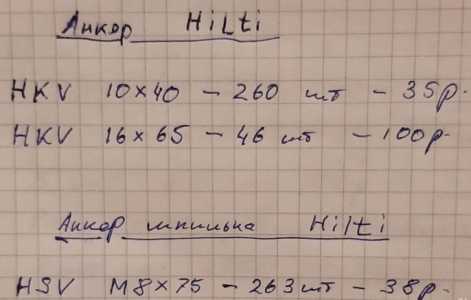 Анкер Hilti
HKV 10×40 – 260 шт – 35р.
HKV 16×65 – 46 шт – 100р.
Анкер шпилька Hilti
HSV М8×75 – 263шт – 38р.